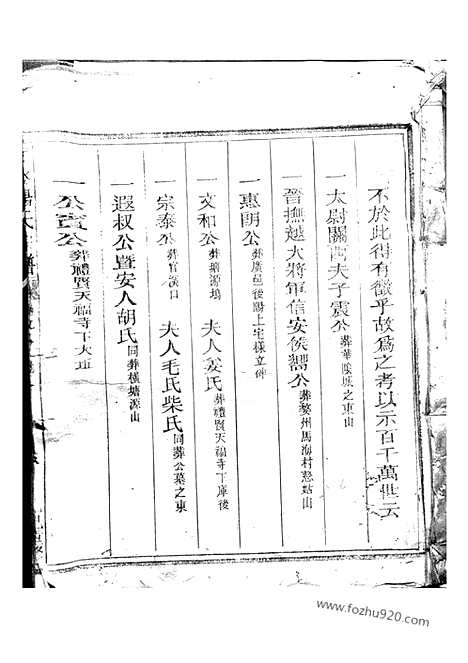 不於此得有徵乎故爲之考以示百千萬世云
一太尉關西夫子震公 葬華陰城之東山
一晉撫越大將軍信安侯 公 葬婺州馬海村 山
一惠明公 葬廣邑後陽上宅樣立碑
一文和公 葬塘源塢 夫人姜氏 葬禮賢天福寺下庫後
一宗泰公 葬官溪口 夫人毛氏柴氏 同葬公墓之東
一遐叔公暨安人胡氏 同葬橫塘源山
一公賓公 葬禮賢天福寺下大
www.fozhu920.com